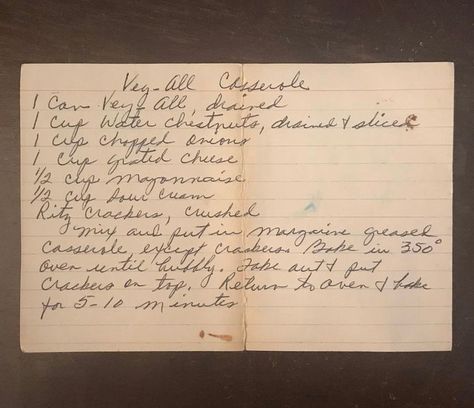 Veg-All Casserole
1 Can Veg-All, drained
1 Cup Water Chestnuts, drained & sliced
1 Cup Chopped Onions
1 Cup grated Cheese
1/2 Cup Mayonnaise
1/2 Cup Sour Cream
Ritz Crackers, Crushed
Mix and put in margarine greased
Casserole, except crackers. Bake in 350°
Oven until bubbly. Take out & put
Crackers on top. Return to oven & bake
for 5-10 minutes